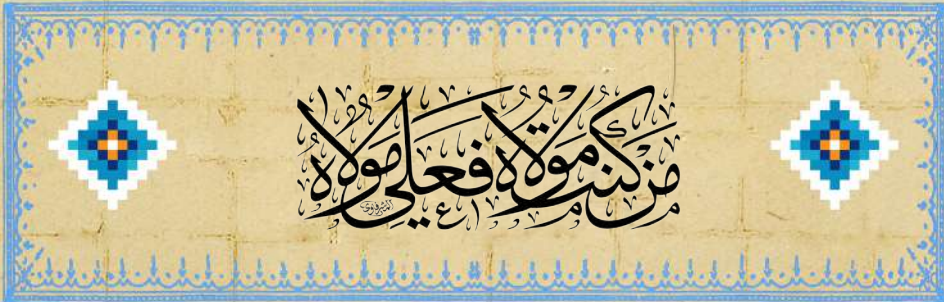 من كنت مولاه فعلي مولاه